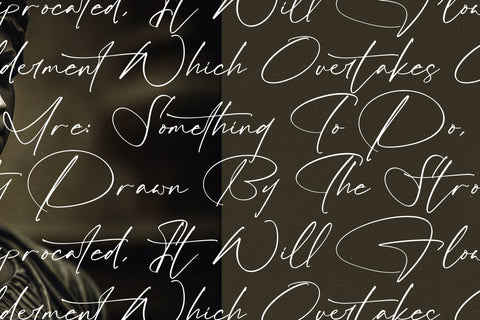 iprocated, It Will Flow
lderment Which Overtakes
Are: Something To Do,
y Drawn By The Stro
iprocated, It Will Flow
lderment Which Overtakes